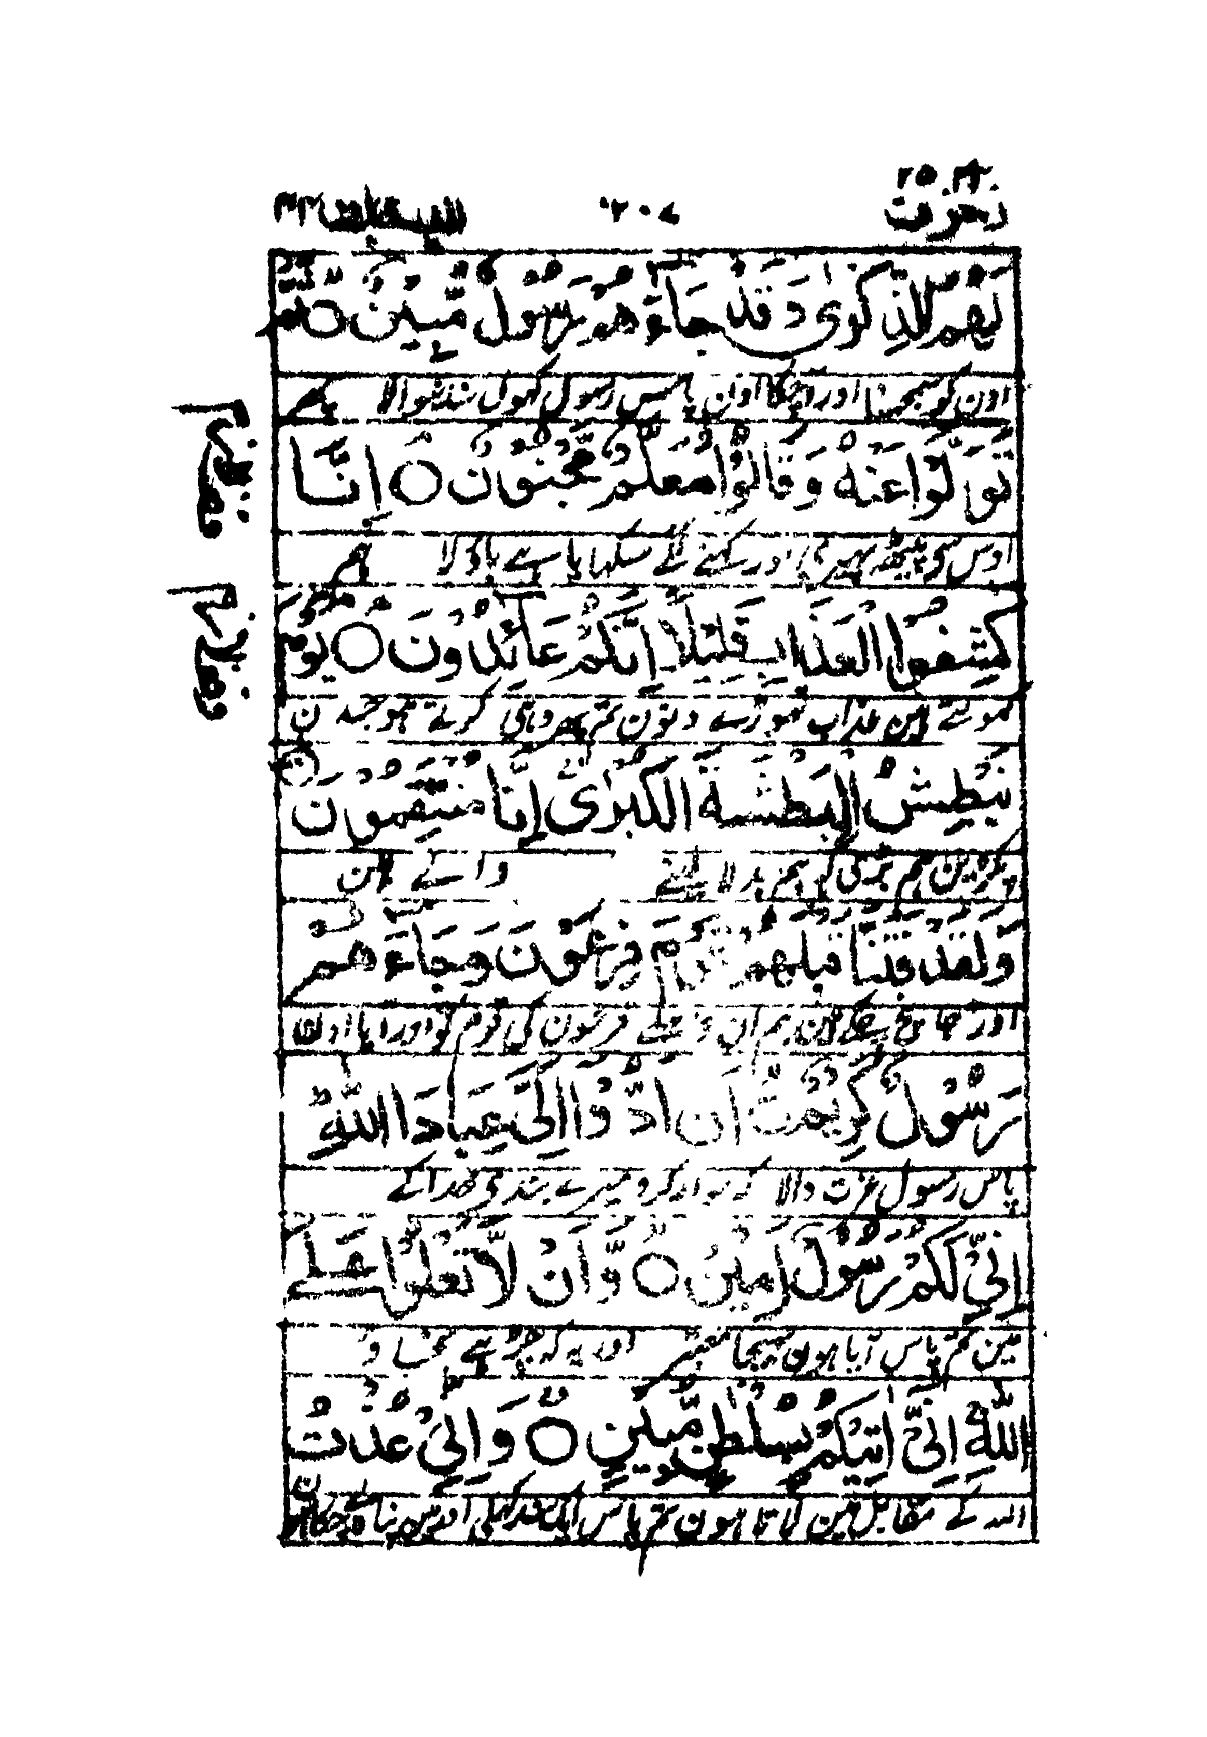 لَهُمُ الذِّكْرٰى وَقَدْ جَآءَهُمْ رَسُوْلٌ مُّبِيْنٌ ○ ثُمَّ
اون کو سمجھنا اور آچکا اون پاس رسول کھول سنانیوالا پھر
تَوَلَّوْا عَنْهُ وَقَالُوْا مُعَلَّمٌ مَّجْنُوْنٌ ○ اِنَّا
اوس سی پیٹھ پھیری اور کہنے لگے سکھایا ہے باولا ہم
كَاشِفُوا الْعَذَابِ قَلِيْلًا اِنَّكُمْ عَآئِدُوْنَ ○ يَوْمَ
کھولتے ہین عذاب تھوڑے دنون تم پھر وہی کرتے ہو جسدن
نَبْطِشُ الْبَطْشَةَ الْكُبْرٰى اِنَّا مُنْتَقِمُوْنَ ○
پکڑین ہم بڑی پکڑ ہم بدلا لینے والے ہین
وَلَقَدْ فَتَنَّا قَبْلَهُمْ قَوْمَ فِرْعَوْنَ وَجَآءَهُمْ
اور جانچ چکے ہین ہم ان سے پہلے فرعون کی قوم کو اور آیا اون
رَسُوْلٌ كَرِيْمٌ اَنْ اَدُّوْا اِلَىَّ عِبَادَ اللّٰهِ
پاس رسول عزت والا کہ حوالہ کرو میرے بندی خدا کے
اِنِّىْ لَكُمْ رَسُوْلٌ اَمِيْنٌ ○ وَّاَنْ لَّا تَعْلُوْا عَلَے
مین تم پاس آیا ہون بھیجا معتبر اور یہ کہ چڑھے نجاؤ
اللّٰهِ اِنِّىْ اٰتِيْكُمْ بِسُلْطٰنٍ مُّبِيْنٍ ○ وَاِنِّىْ عُذْتُ
اللہ کے مقابل مین لاتا ہون تم پاس ایک سند کھلی اور مین پناہ لے چکا ہون